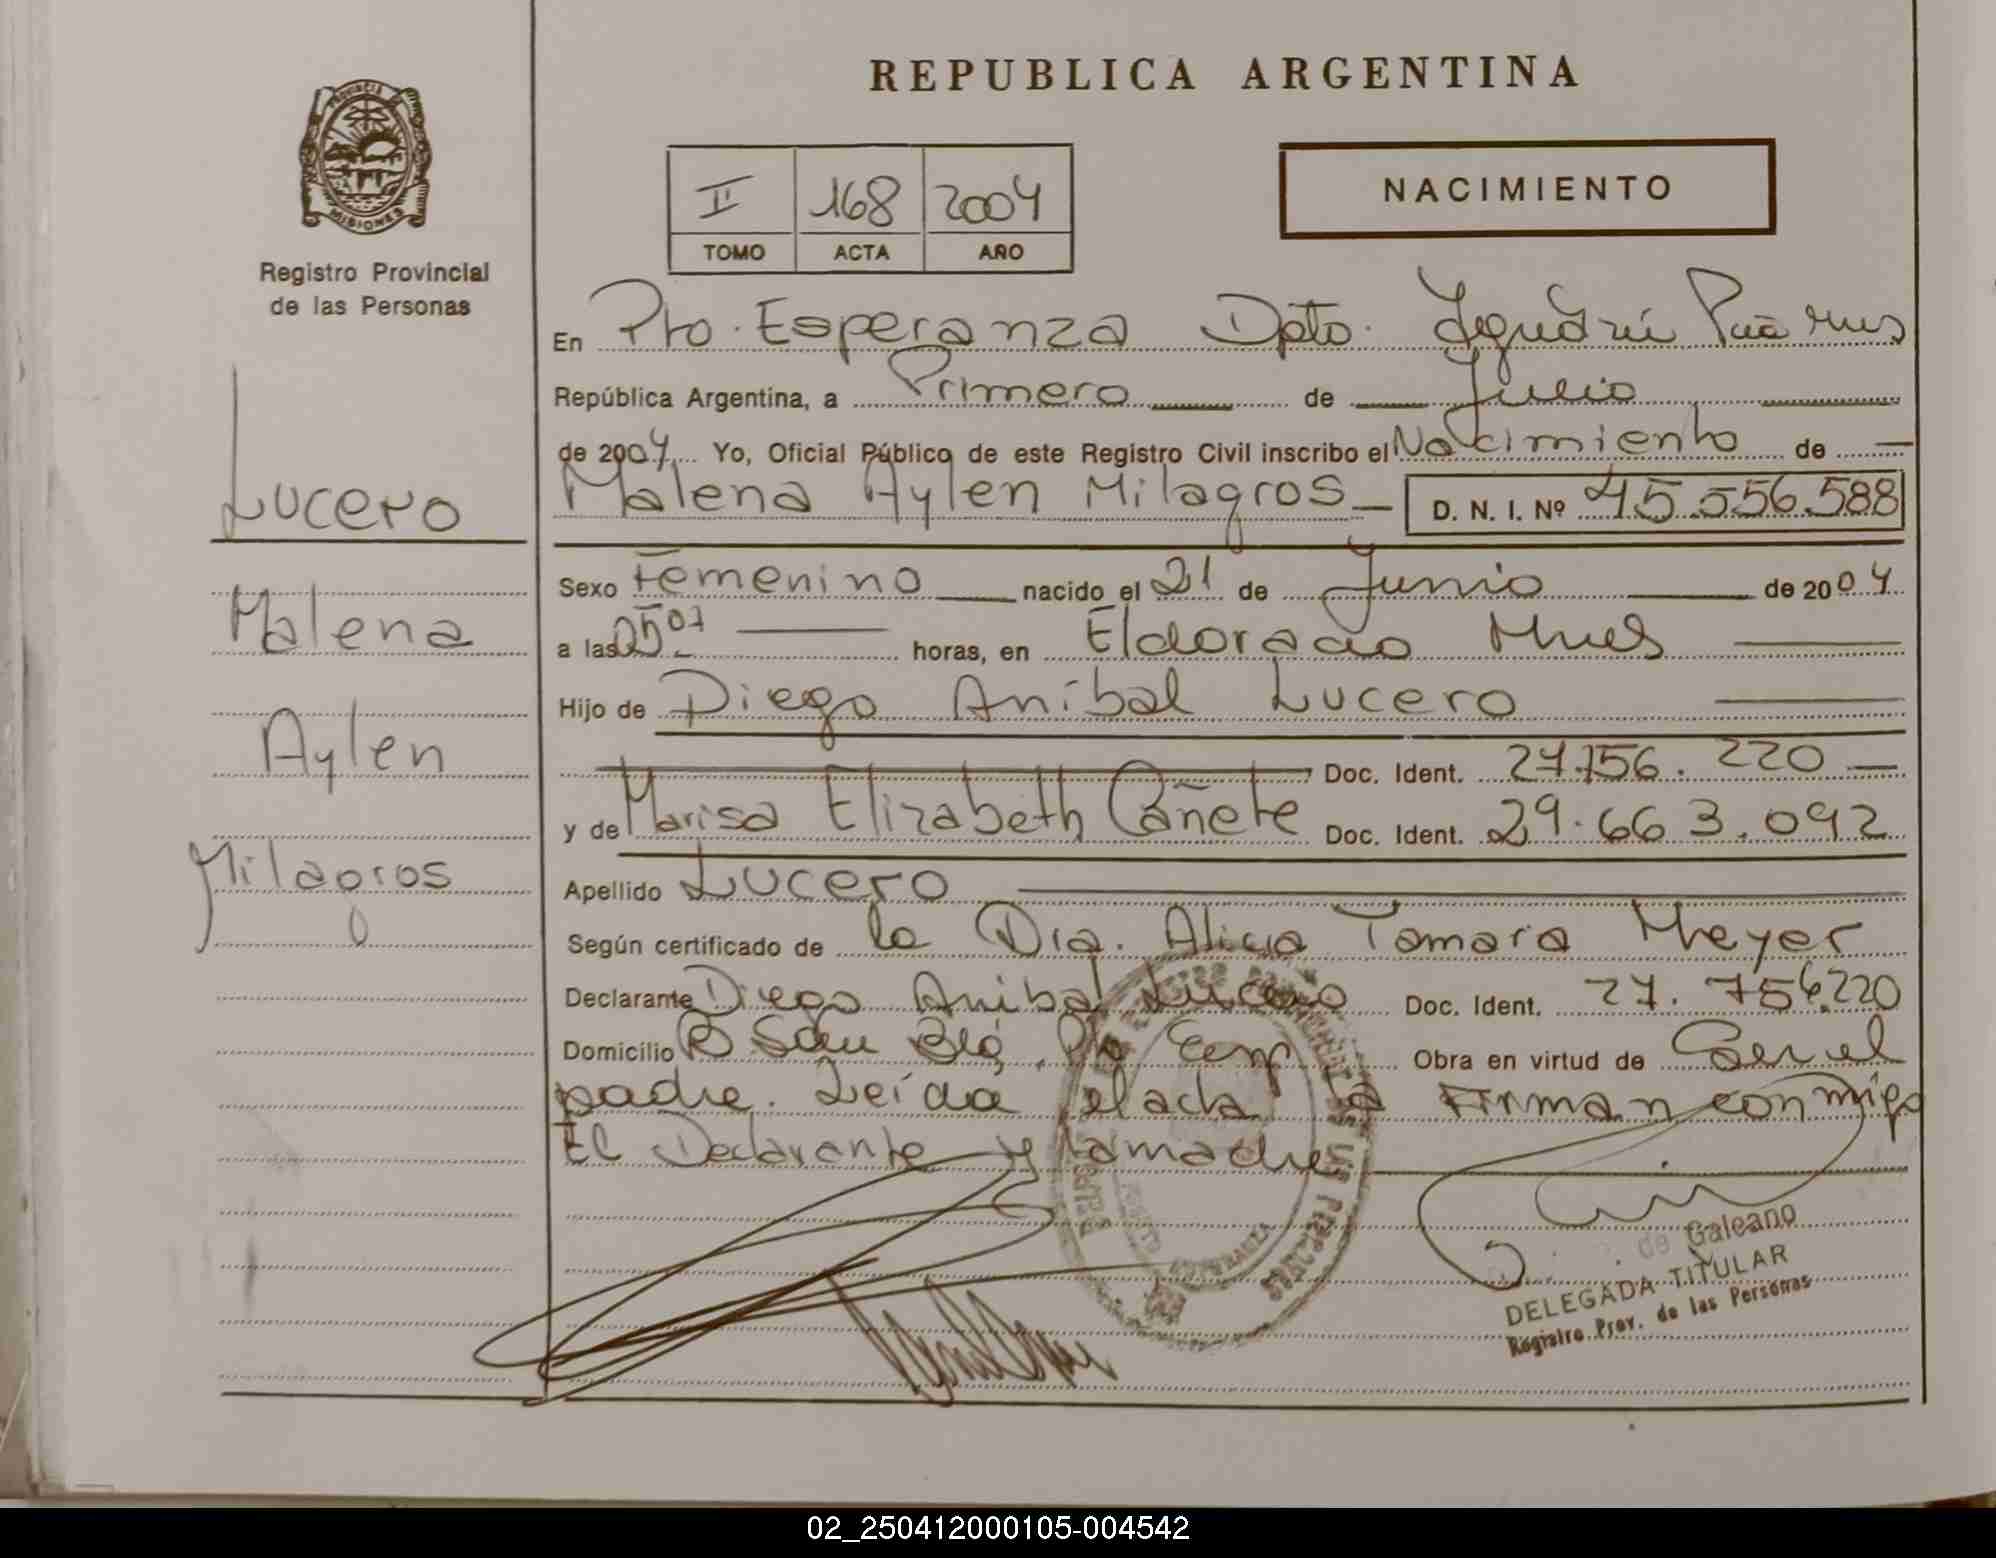 REPUBLICA ARGENTINA
PROVINCIA DE
MISIONES
Registro Provincial
de las Personas
II 168 2004
TOMO ACTA AÑO
NACIMIENTO
En Pto. Esperanza Dpto. Iguazú
República Argentina, a Primero de Julio
de 2004 Yo, Oficial Público de este Registro Civil inscribo el Nacimiento de
Malena Aylen Milagros D. N. I. Nº 45.556.588
Sexo Femenino nacido el 21 de Junio de 2004
a las 05 07 horas, en Eldorado Mnes
Hijo de Diego Aníbal Lucero
Doc. Ident. 27.756.220
y de Marisa Elizabeth Cañete Doc. Ident. 29.663.092
Apellido Lucero
Según certificado de la Dra. Alicia Tamara Meyer
Declarante Diego Anibal Lucero Doc. Ident. 27.756.220
Domicilio Bº San Pto Obra en virtud de Ser el
padre. Leída el acta la Firman conmigo
El Declarante y la madre
Lucero
Malena
Aylen
Milagros
de Galeano
DELEGADA TITULAR
Registro Prov. de las Personas
02_250412000105-004542